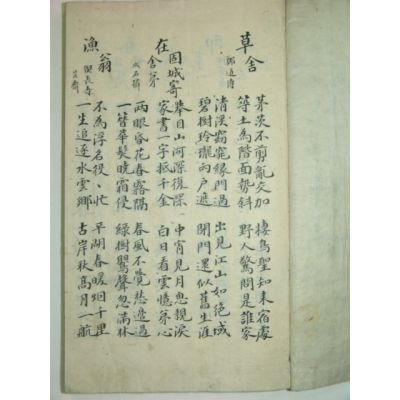 草舍 鄭道傳
茅茨不剪亂交加 棲鳥聖知來宿處
築土為階面勢斜 野人驚問是誰家
清溪窈窕緣門過 出見江山如絶域
碧樹玲瓏向戶遮 閉門還似舊生涯
在固城寄舍弟 成石磷
擧目山河深復深 中宵見月思親淚
家書一字抵千金 白日看雲憶弟心
兩眼昏花春霧隔 春風不覺愁邊過
一簪華髮曉霜侵 綠樹鶯聲忽滿林
漁翁 偰長壽 芸齋
不為浮名役〻忙 平湖春暖烟千里
一生追逐水雲鄉 古岸秋高月一航